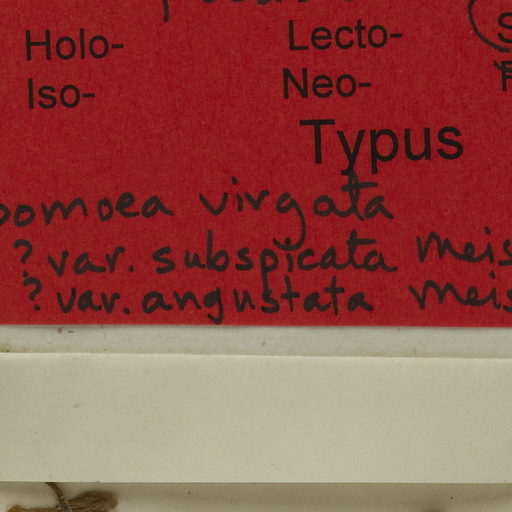 Holo- Lecto- S
Iso- Neo-
Typus
oomoea virgata
? var. subspicata Meis
? var. angustata Meis